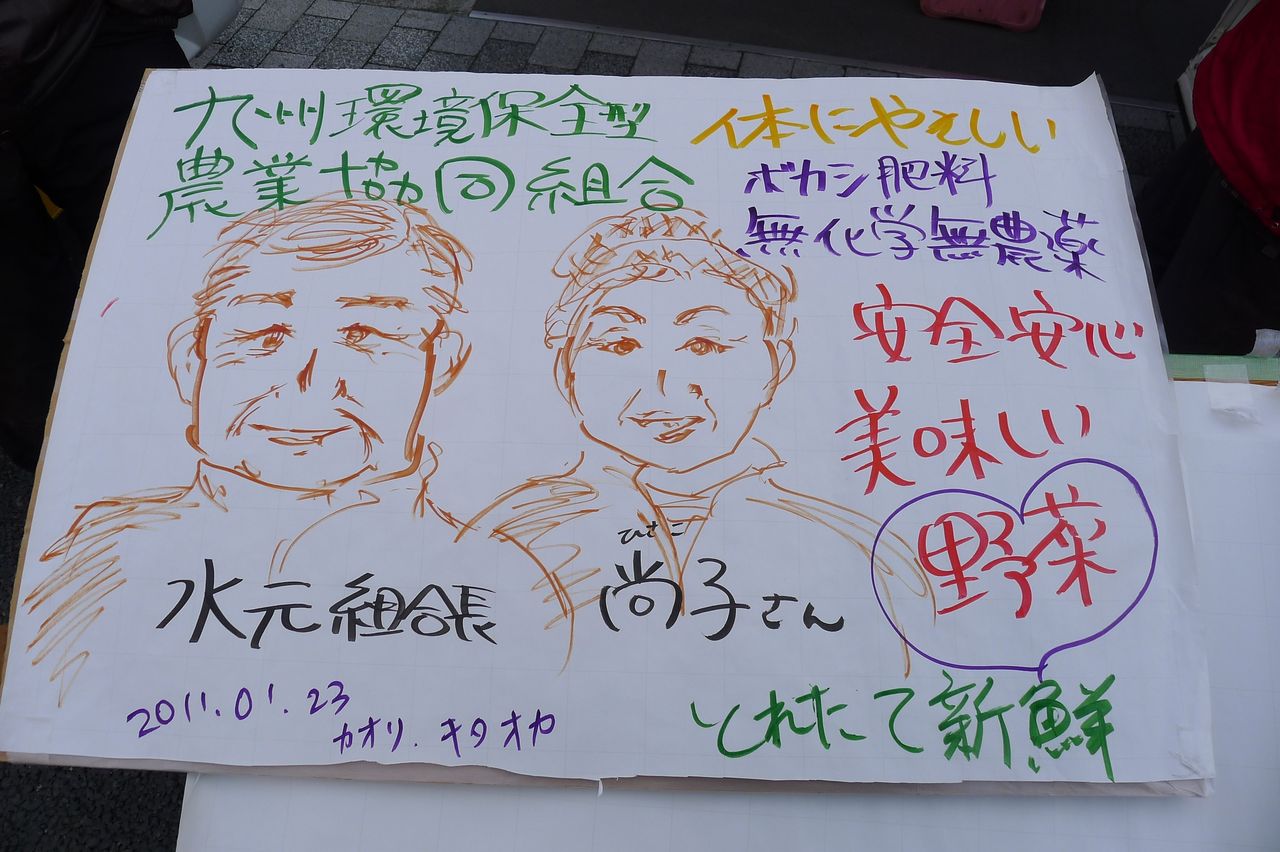 九州環境保全型
農業協同組合
体にやさしい
ボカシ肥料
無化学無農薬
安全安心
美味しい
野菜
とれたて新鮮
水元組合長
ひさこ
尚子さん
2011.01.23
カオリ.キタオカ